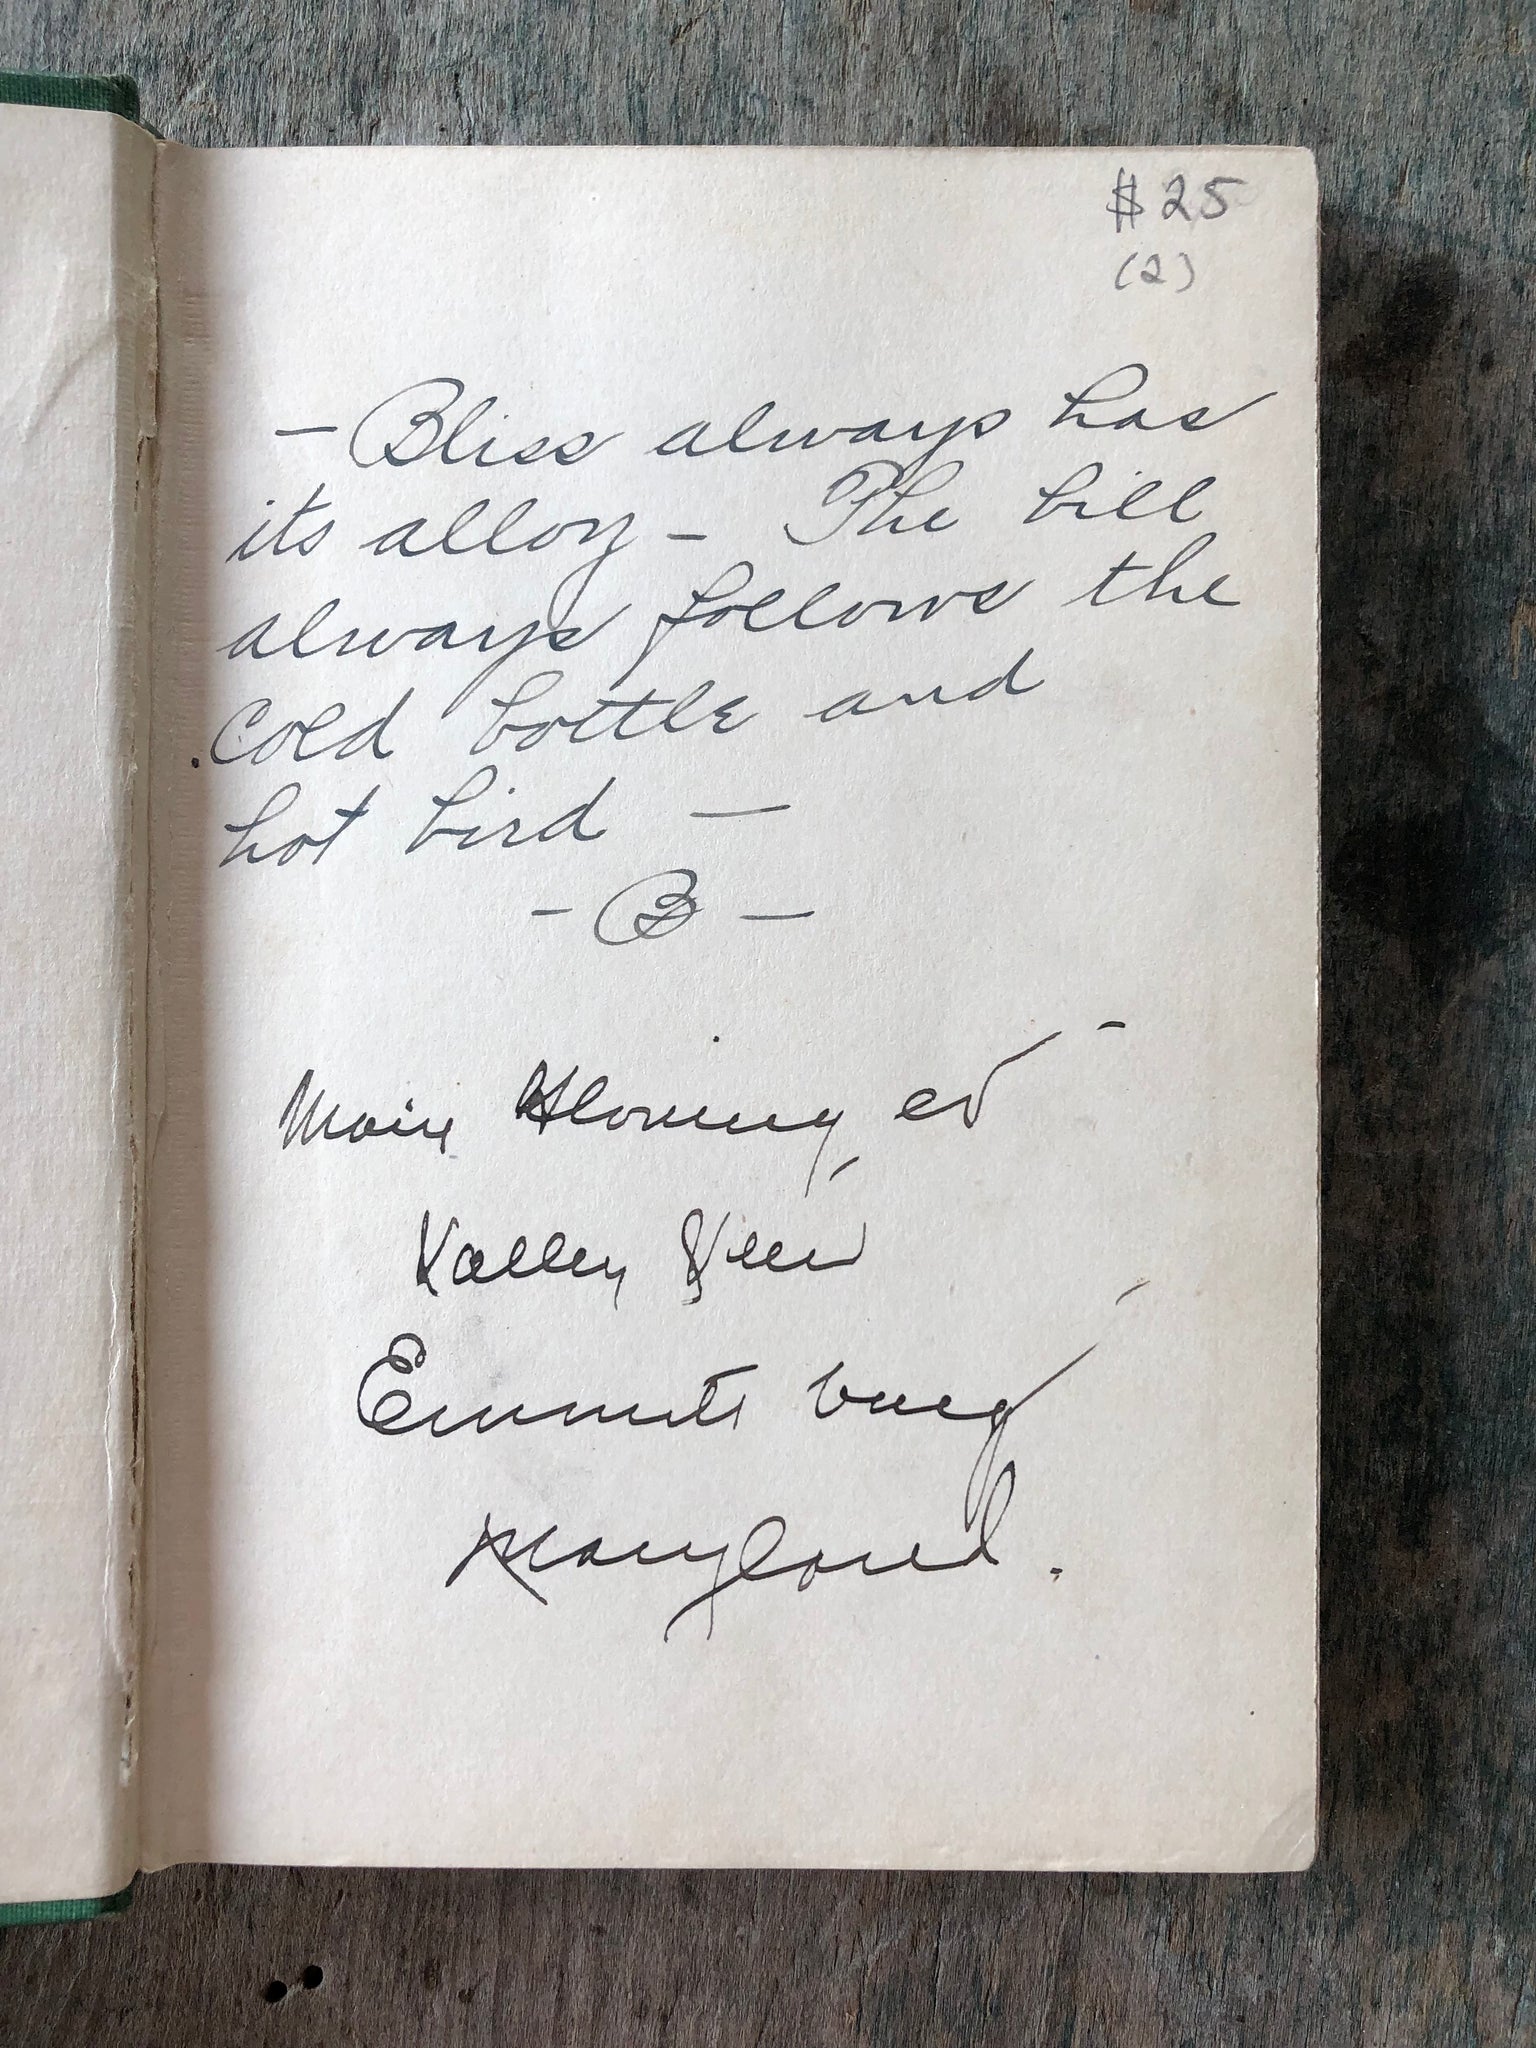 $25
(2)
- Bliss always has
its alloy - The bill
always follows the
Cold bottle and
hot bird -
- B -
Valley View
Emmitsburg
Maryland.